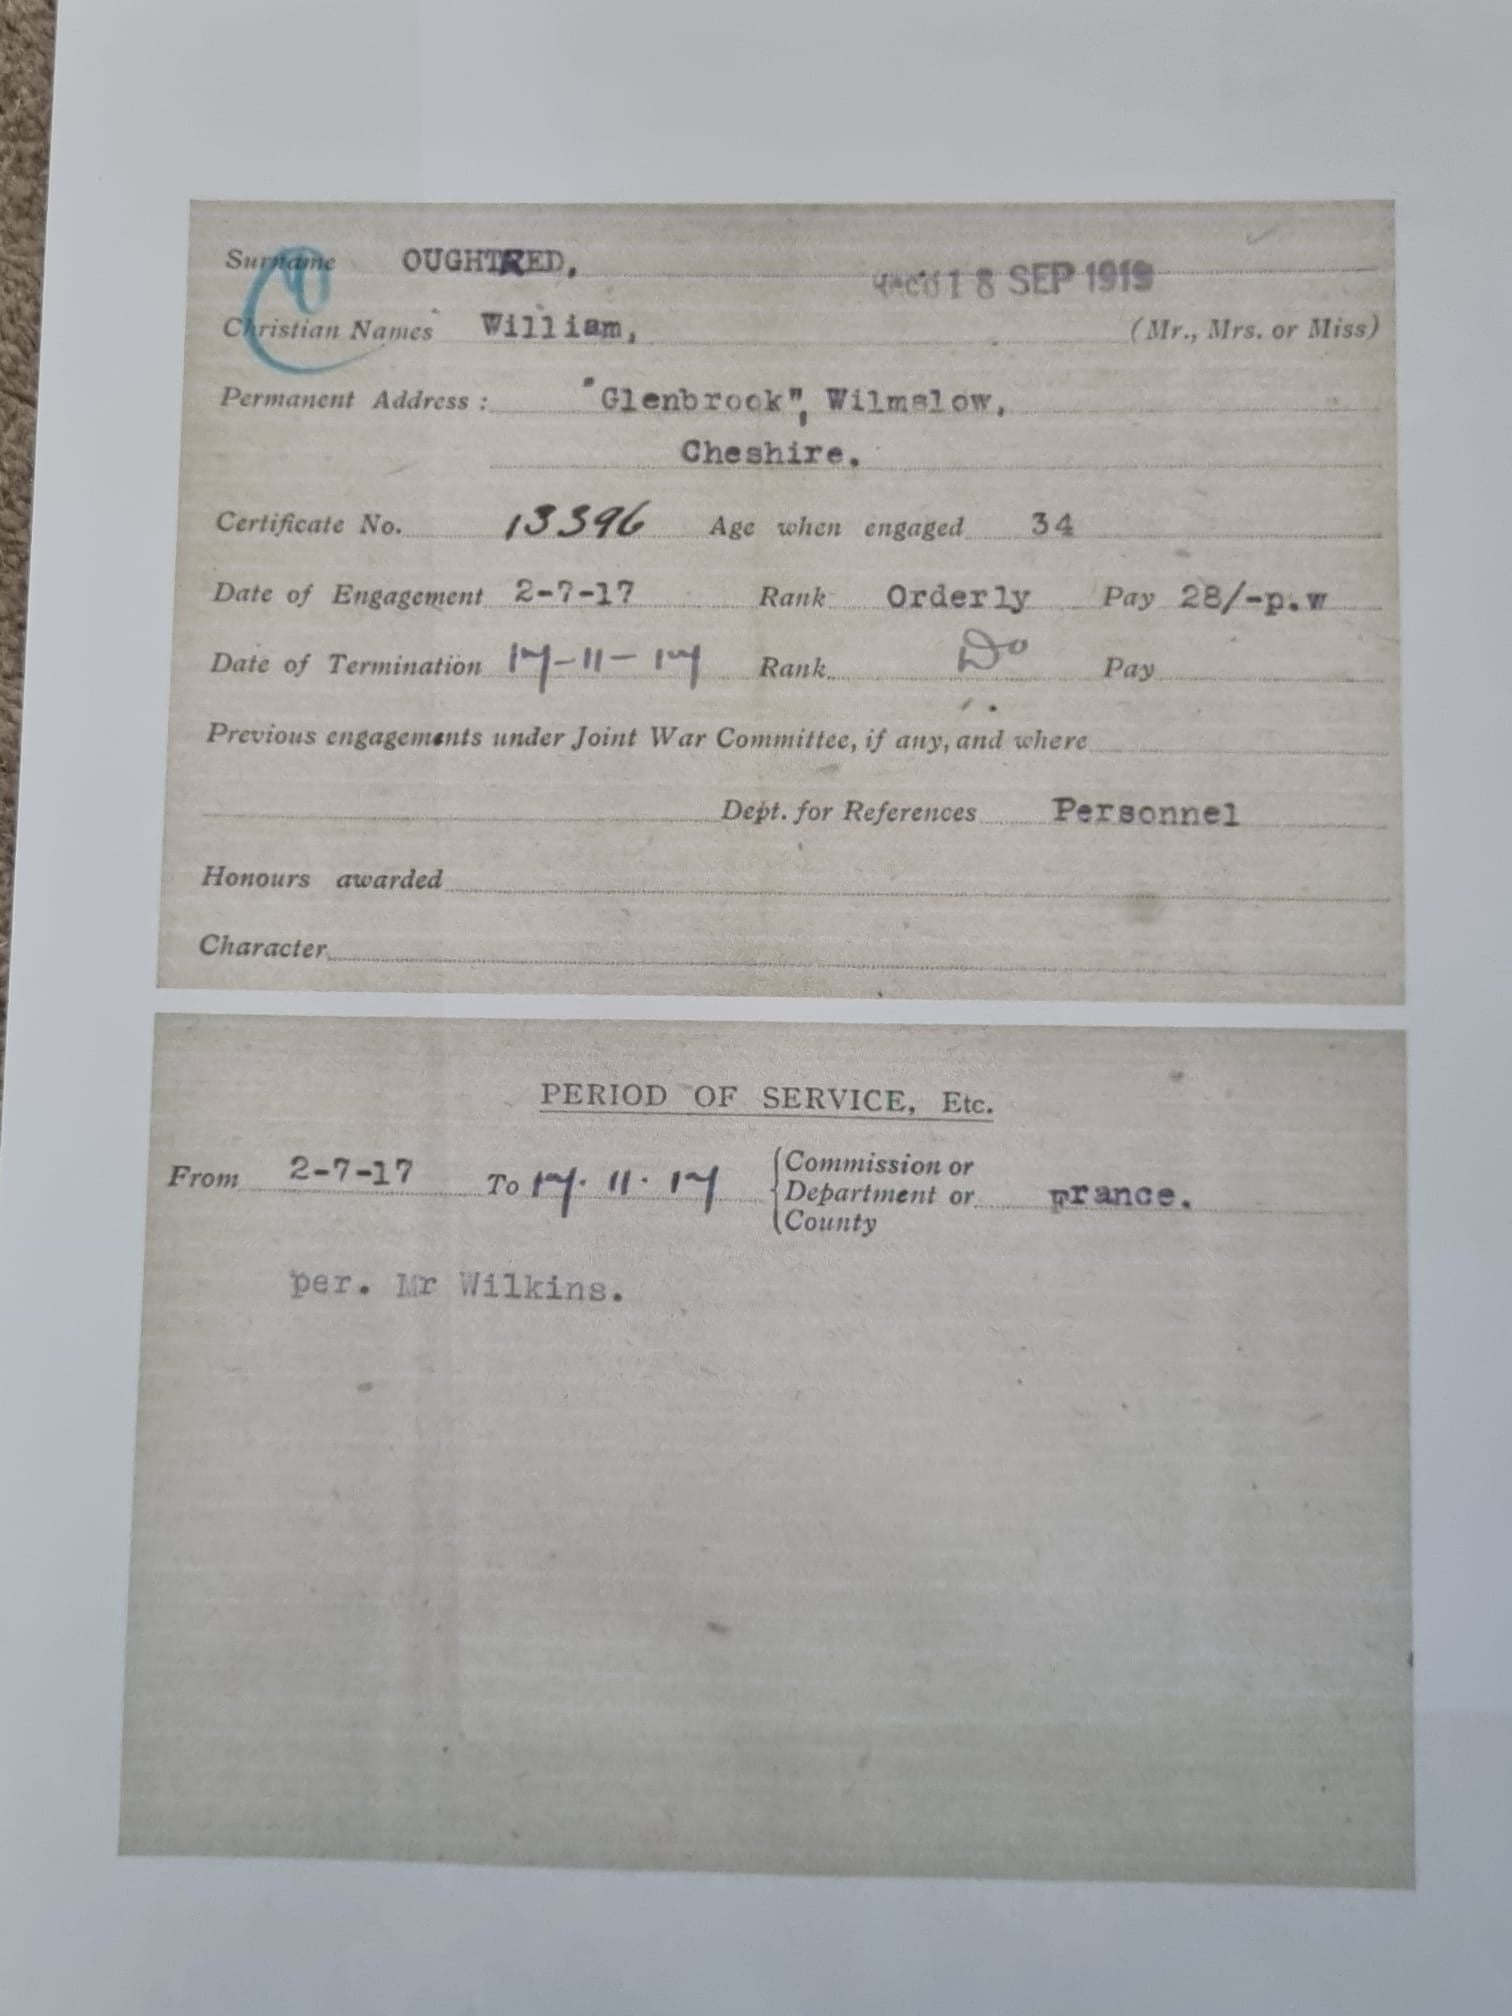 Surname OUGHTRED,
Rec'd 18 SEP 1919
Christian Names William, (Mr., Mrs. or Miss)
Permanent Address : "Glenbrook", Wilmslow,
Cheshire.
Certificate No. 13396 Age when engaged 34
Date of Engagement 2-7-17 Rank Orderly Pay 28/-p.w
Date of Termination 17-11-17 Rank Do Pay
Previous engagements under Joint War Committee, if any, and where
Dept. for References Personnel
Honours awarded
Character
PERIOD OF SERVICE, Etc.
From 2-7-17 To 17.11.17 { Commission or
Department or France.
County
per. Mr Wilkins.